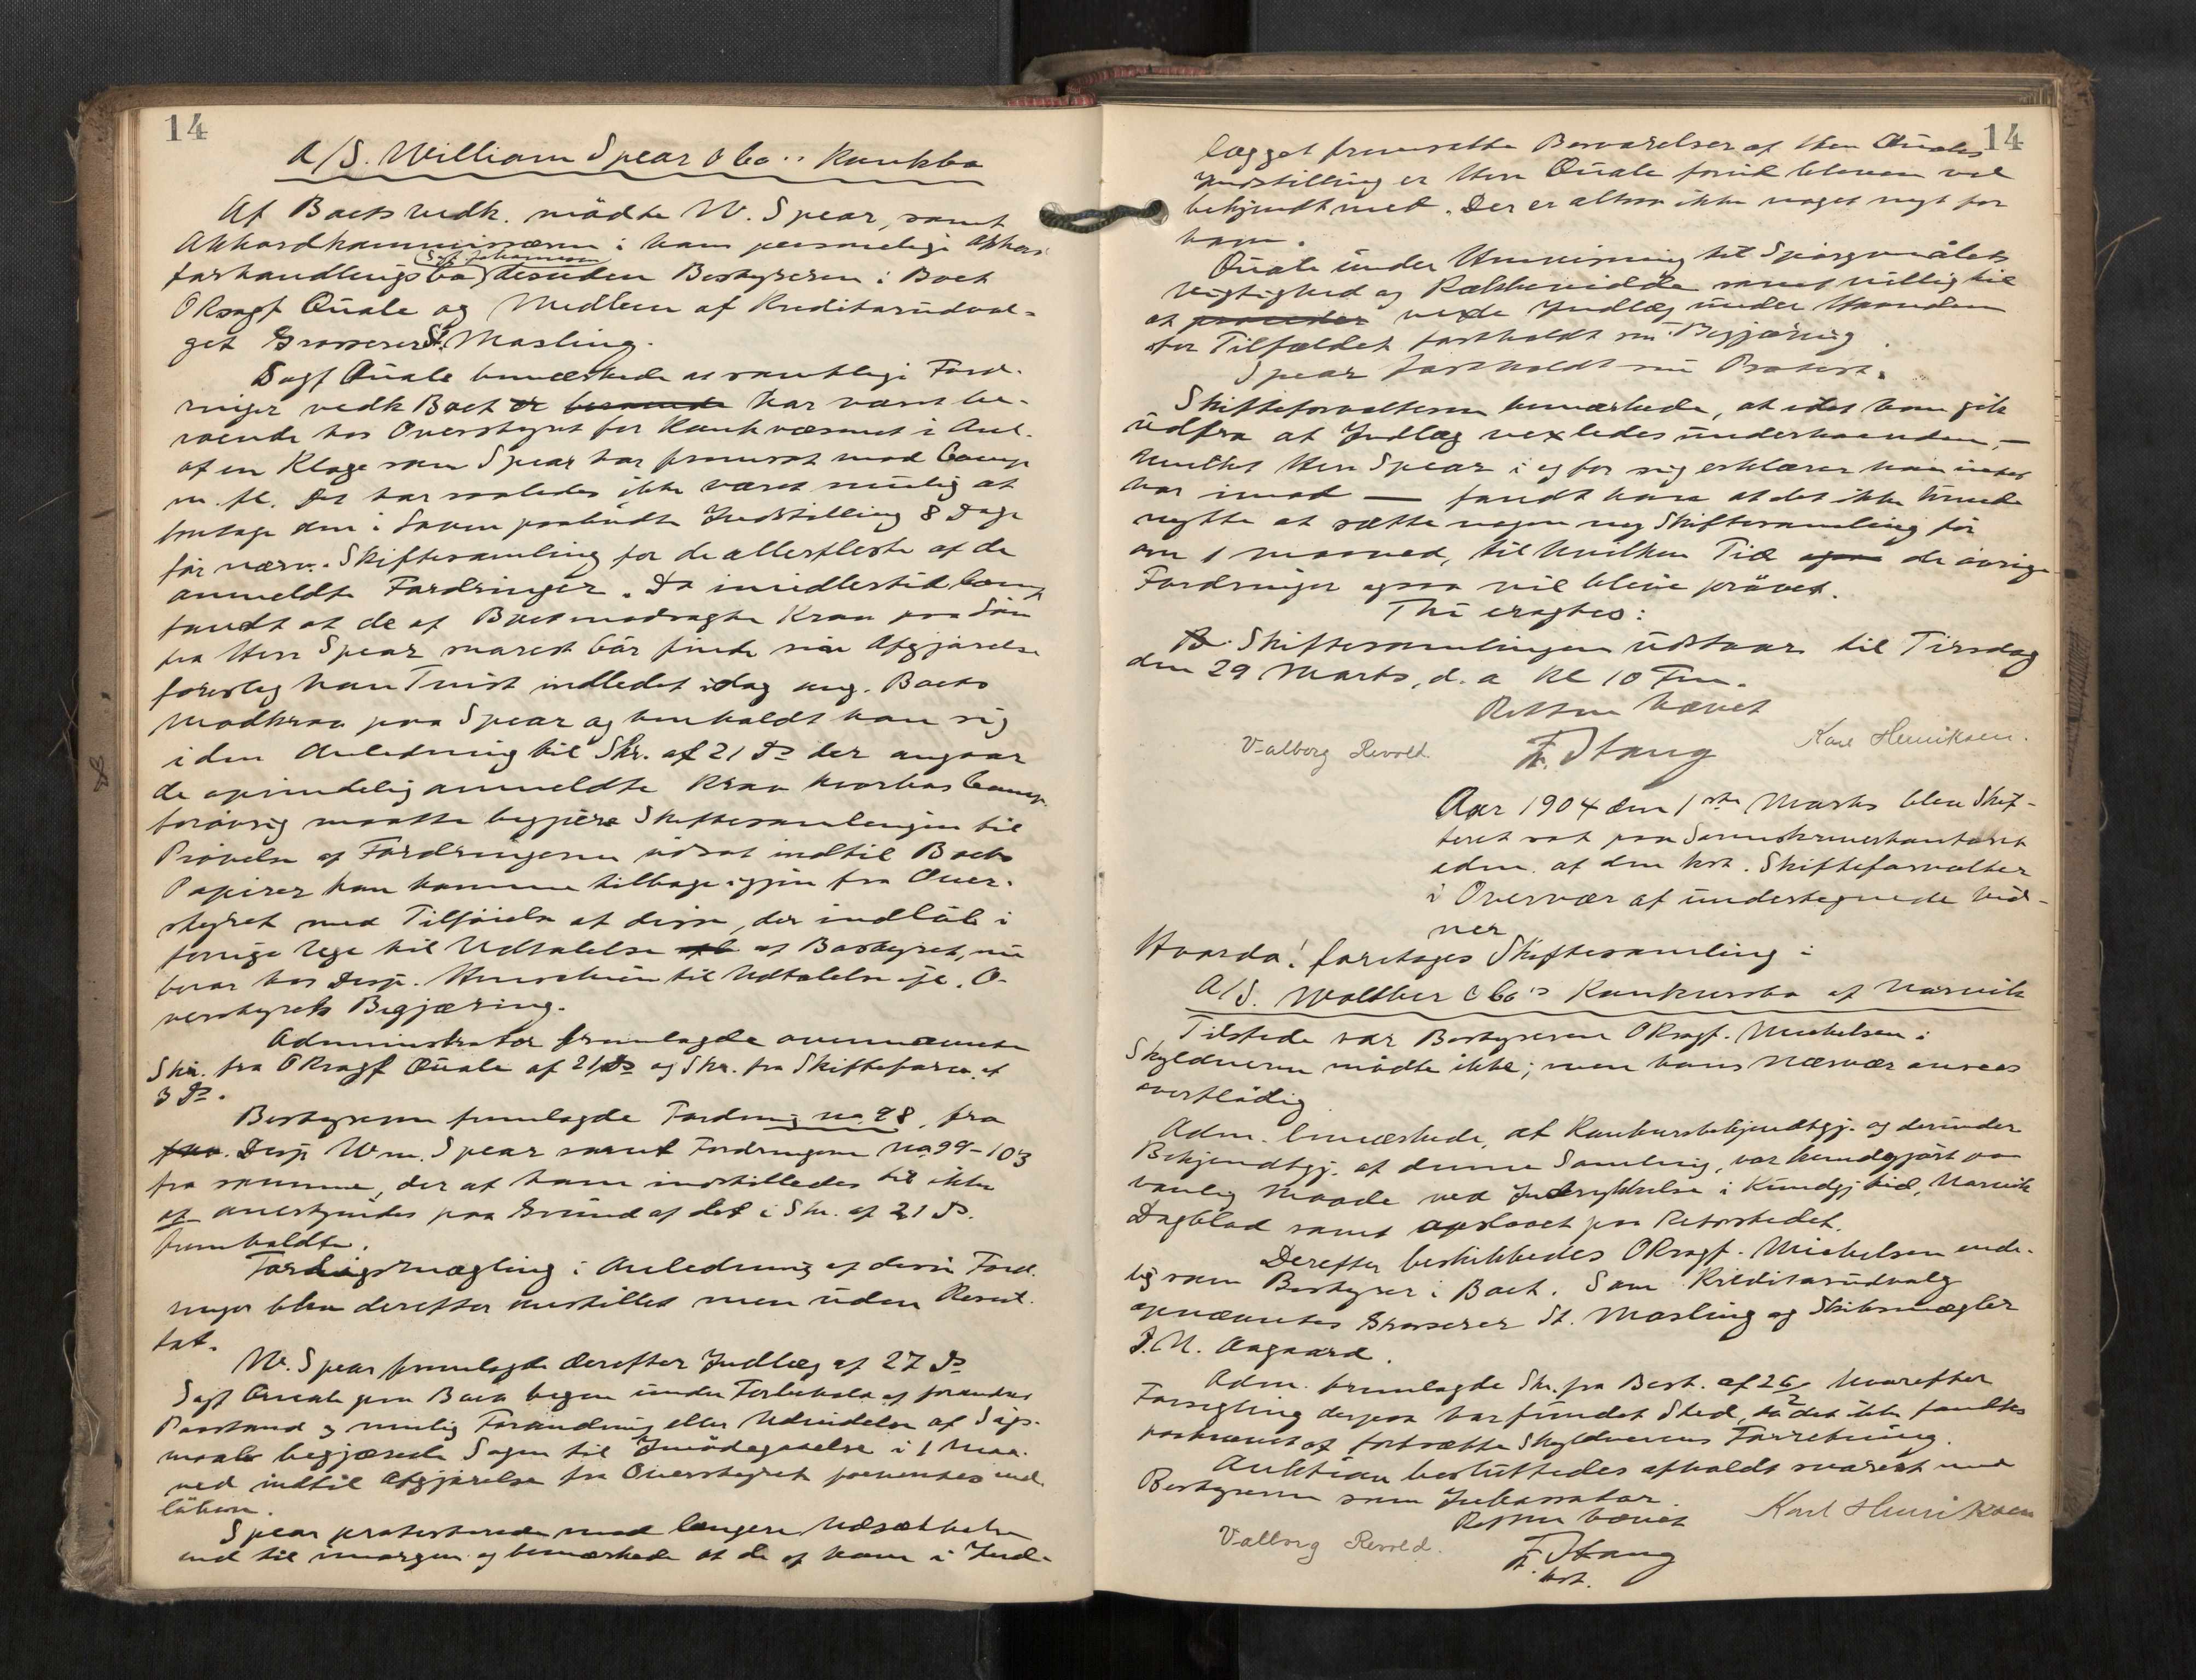 14
A/S. William Spear & Co.'s Konkbo
Af Boets vedk. mødte W. Spear, samt
Akkordkommissæren i hans personlige Akkord
forhandlingsbo (Sagf. Johannesen) desuden Bestyreren i Boet
ORsagf Quale og Medlem af Kreditorudval-
get Grosserer St. Masling.
Sagf Quale bemærkede at samtlige Ford-
ringer vedk Boet er beroende har været be-
roende hos Overstyret for Konkvæsenet i Anl.
af en Klage som Spear har fremsat mod Comp
m. fl. Det har saaledes ikke været mulig at
foretage den i Loven paabudte Indstilling 8 Dage
før nærv. Skiftesamling for de allerfleste af de
anmeldte Fordringer. Da imidlertid Comp
fandt at de af Boet modtagne Krav paa Løn
fra Herr Spear snarest bør finde sin Afgjørelse
foreslog han Tvist indledet idag ang. Boets
Modkrav paa Spear og henholdt han sig
i den Anledning til Skr. af 21 Ds der angaar
de oprindelig anmeldte Krav hvorhos Comp.
forøvrig maatte begjære Skiftesamlingen til
Prøvelse af Fordringerne udsat indtil Boets
Papirer kan komme tilbage igjen fra Over-
styret med Tilføielse at disse, der indløb i
forrige Uge til Udtalelse af Bostyret, nu
beror hos Disp. til Udtalelse ifl. O-
verstyrets Begjæring.
Administrator fremlagde ovennævnte
Skr. fra ORsagf Quale af 21 Ds og Skr. fra Skifteforv. af
3 Ds.
Bestyreren fremlagde Fordring no 98, fra
Disp Wm. Spear samt Fordringerne no 99-103
fra samme, der af ham indstilledes til ikke
at anerkjendes paa Grund af det i Skr. af 21 Ds.
fremholdte.
Forligsmægling i Anledning af disse Ford-
ringer blev derefter anstillet men uden Resul-
tat.
W. Spear fremlagde derefter Indlæg af 27 Ds
Sagf Quale paa Boets vegne under Forbehold af forandret
Paastand og mulig Forandring eller Udvidelse af Søgs-
maalet begjærede Sagen til Imødegaaelse i 1 Maa-
ned indtil Afgjørelse fra Overstyret forventes ind-
løben.
Spear protesterede mod længere Udsættelse
end til imorgen og bemærkede at de af ham i Ind-
14
lægget fremsatte Besvarelser af Herr Quales
Indstilling er Herr Quale forud bleven vel
bekjendt med. Der er altsaa ikke noget nyt for
ham.
Quale under Henvisning til Spørgsmålets
Vigtighed og Rækkevidde samt villig til
at vexle Indlæg under Haanden
for Tilfældet fastholdt sin Begjæring.
Spear fastholdt sin Protest.
Skifteforvalteren bemærkede, at idet han gik
udfra at Indlæg vexledes underhaanden, —
hvilket Herr Spear i og for sig erklærer han intet
har imod — fandt han at det ikke kunde
nytte at sætte nogen ny Skiftesamling før
om 1 Maaned, til hvilken Tid de øvrige
Fordringer ogsaa vil blive prøvet.
Thi eragtes:
Skiftesamlingen udstaar til Tirsdag
den 29 Marts, d. a Kl 10 Fm.
Retten hævet
Valborg Revold. F. Stang Karl Henriksen.
Aar 1904 den 1ste Marts blev Skif-
teret sat paa Sorenskriverkontoret
adm. af den kst. Skifteforvalter
i Overvær af undertegnede Vid-
ner
Hvorda! foretages Skiftesamling i
A/S. Wolther & Co's Konkursbo af Narvik
Tilstede var Bestyreren ORsagf. Michelsen :
Skyldneren mødte ikke; men hans Nærvær ansees
overflødig
Adm. bemærkede, at Konkursbekjendtgj. og derunder
Bekjendtgj. af denne Samling, var kundgjort paa
vanlig Maade ved Indrykkelse i Kundgj tid, Narvik
Dagblad samt opslaaet paa Retsstedet.
Derefter beskikkedes ORsagf. Michelsen ende-
lig som Bestyrer i Boet. Som Kreditorudvalg
opnævntes Grosserer St. Masling og Skibsmægler
I. N. Aagaard.
Adm. fremlagde Skr. fra Best. af 26/2 hvorefter
Forsegling derpaa har fundet Sted, da det ikke fandtes
paakrævet at fortsætte Skyldnerens Forretning.
Auktion besluttedes afholdt snarest med
Bestyreren som Inkassator.
Retten hævet
Valborg Revold. F. Stang Karl Henriksen
kst.